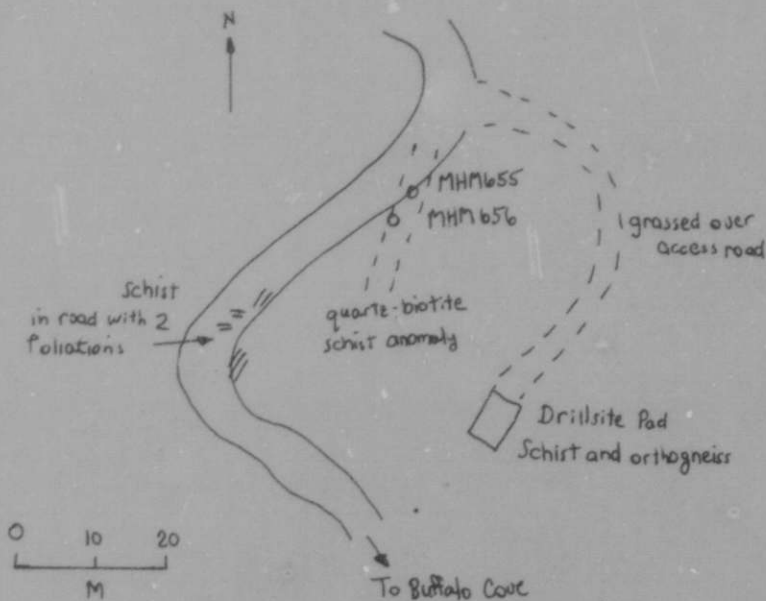 N
MHM655
MHM656
grassed over
access road
Schist
in road with 2
foliations
quartz-biotite
schist anomaly
Drillsite Pad
Schist and orthogneiss
0 10 20
M
To Buffalo Cove